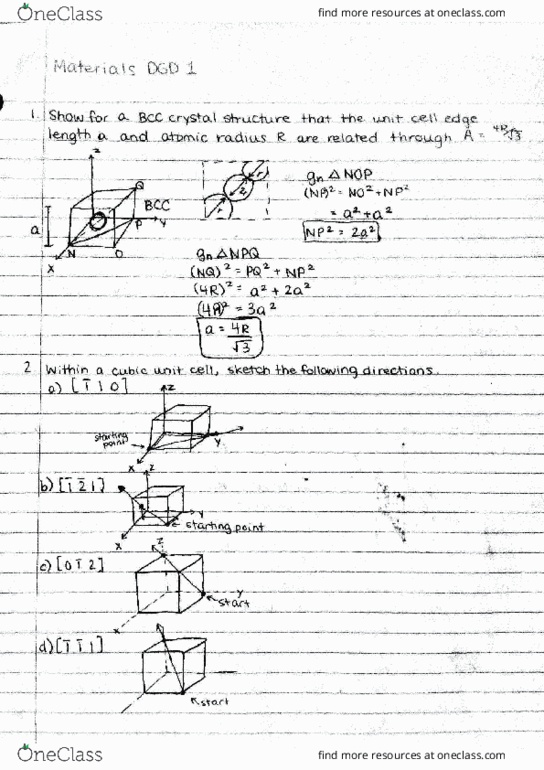 OneClass
find more resources at oneclass.com
Materials DGD 1
1. Show for a BCC crystal structure that the unit cell edge
length a and atomic radius R are related through A = 4R/√3
z
Q
BCC
P
y
a
N
O
x
r
2r
r
In △ NOP
(NP)² = NO² + NP²
= a² + a²
NP² = 2a²
In △ NPQ
(NQ)² = PQ² + NP²
(4R)² = a² + 2a²
(4R)² = 3a²
a = 4R/√3
2 Within a cubic unit cell, sketch the following directions.
a) [1̄ 1 0]
z
starting point
y
x
b) [1̄ 2̄ 1]
z
y
starting point
x
c) [0 1̄ 2]
z
y
start
x
d) [1̄ 1̄ 1]
start
OneClass
find more resources at oneclass.com